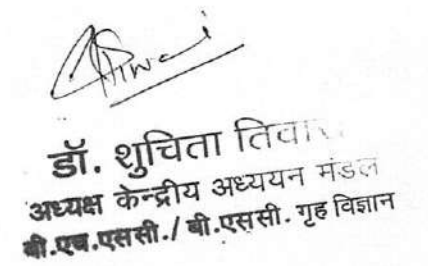 डॉ. शुचिता
अध्यक्ष केन्द्रीय अध्ययन मंडल
बी.एच.एससी./ बी.एससी. गृह विज्ञान